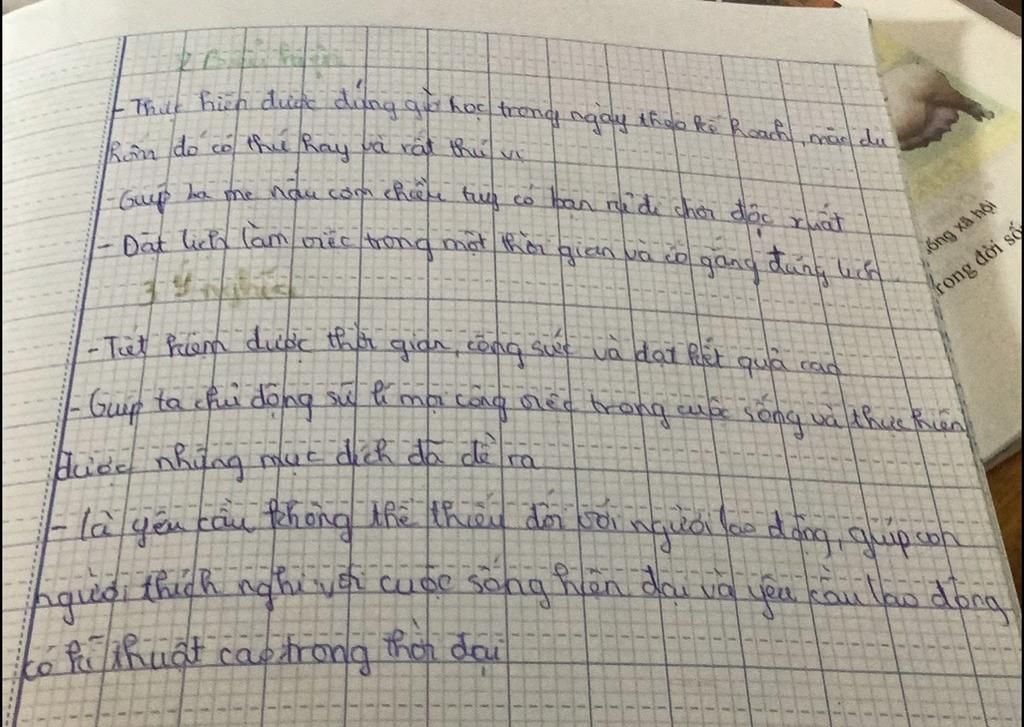 2 Biểu hiện
- Thực hiện được đúng giờ học trong ngày theo kế hoạch, mặc dù
hôm đó có thứ hay và rất thú vị
- Giúp ba mẹ nấu cơm chiều tuy có bạn rủ đi chơi đột xuất
- Đặt lịch làm việc trong một thời gian và cố gắng đúng lịch
3 Ý nghĩa
- Tiết kiệm được thời gian, công sức và đạt kết quả cao
- Giúp ta chủ động sử lí mọi công việc trong cuộc sống và thực hiện
được những mục đích đã đề ra
- là yêu cầu không thể thiếu đối với người lao động, giúp con
người thích nghi với cuộc sống hiện đại và yêu cầu lao động
có kĩ thuật cao trong thời đại
sống xã hội
trong đời số